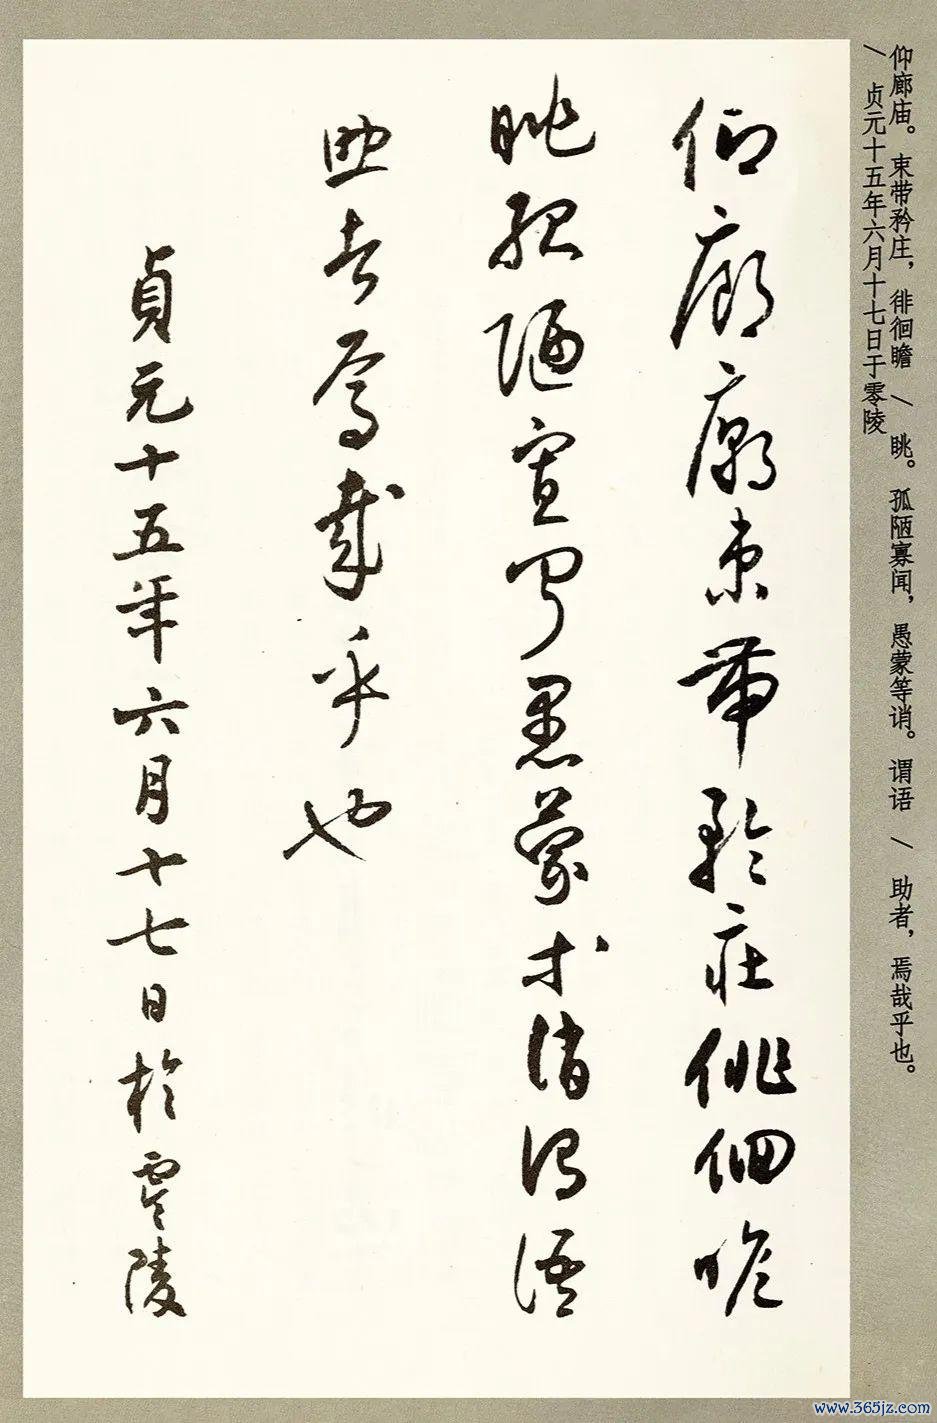 仰廊庙。束带矜庄，徘徊瞻 \ 眺。孤陋寡闻，愚蒙等诮。谓语 \ 助者，焉哉乎也。
\ 贞元十五年六月十七日于零陵
仰廊廟束帶矜莊俳佪瞻
眺孤陋寡聞愚蒙等誚謂語
助者焉哉乎也
貞元十五年六月十七日於零陵
www.365jz.com